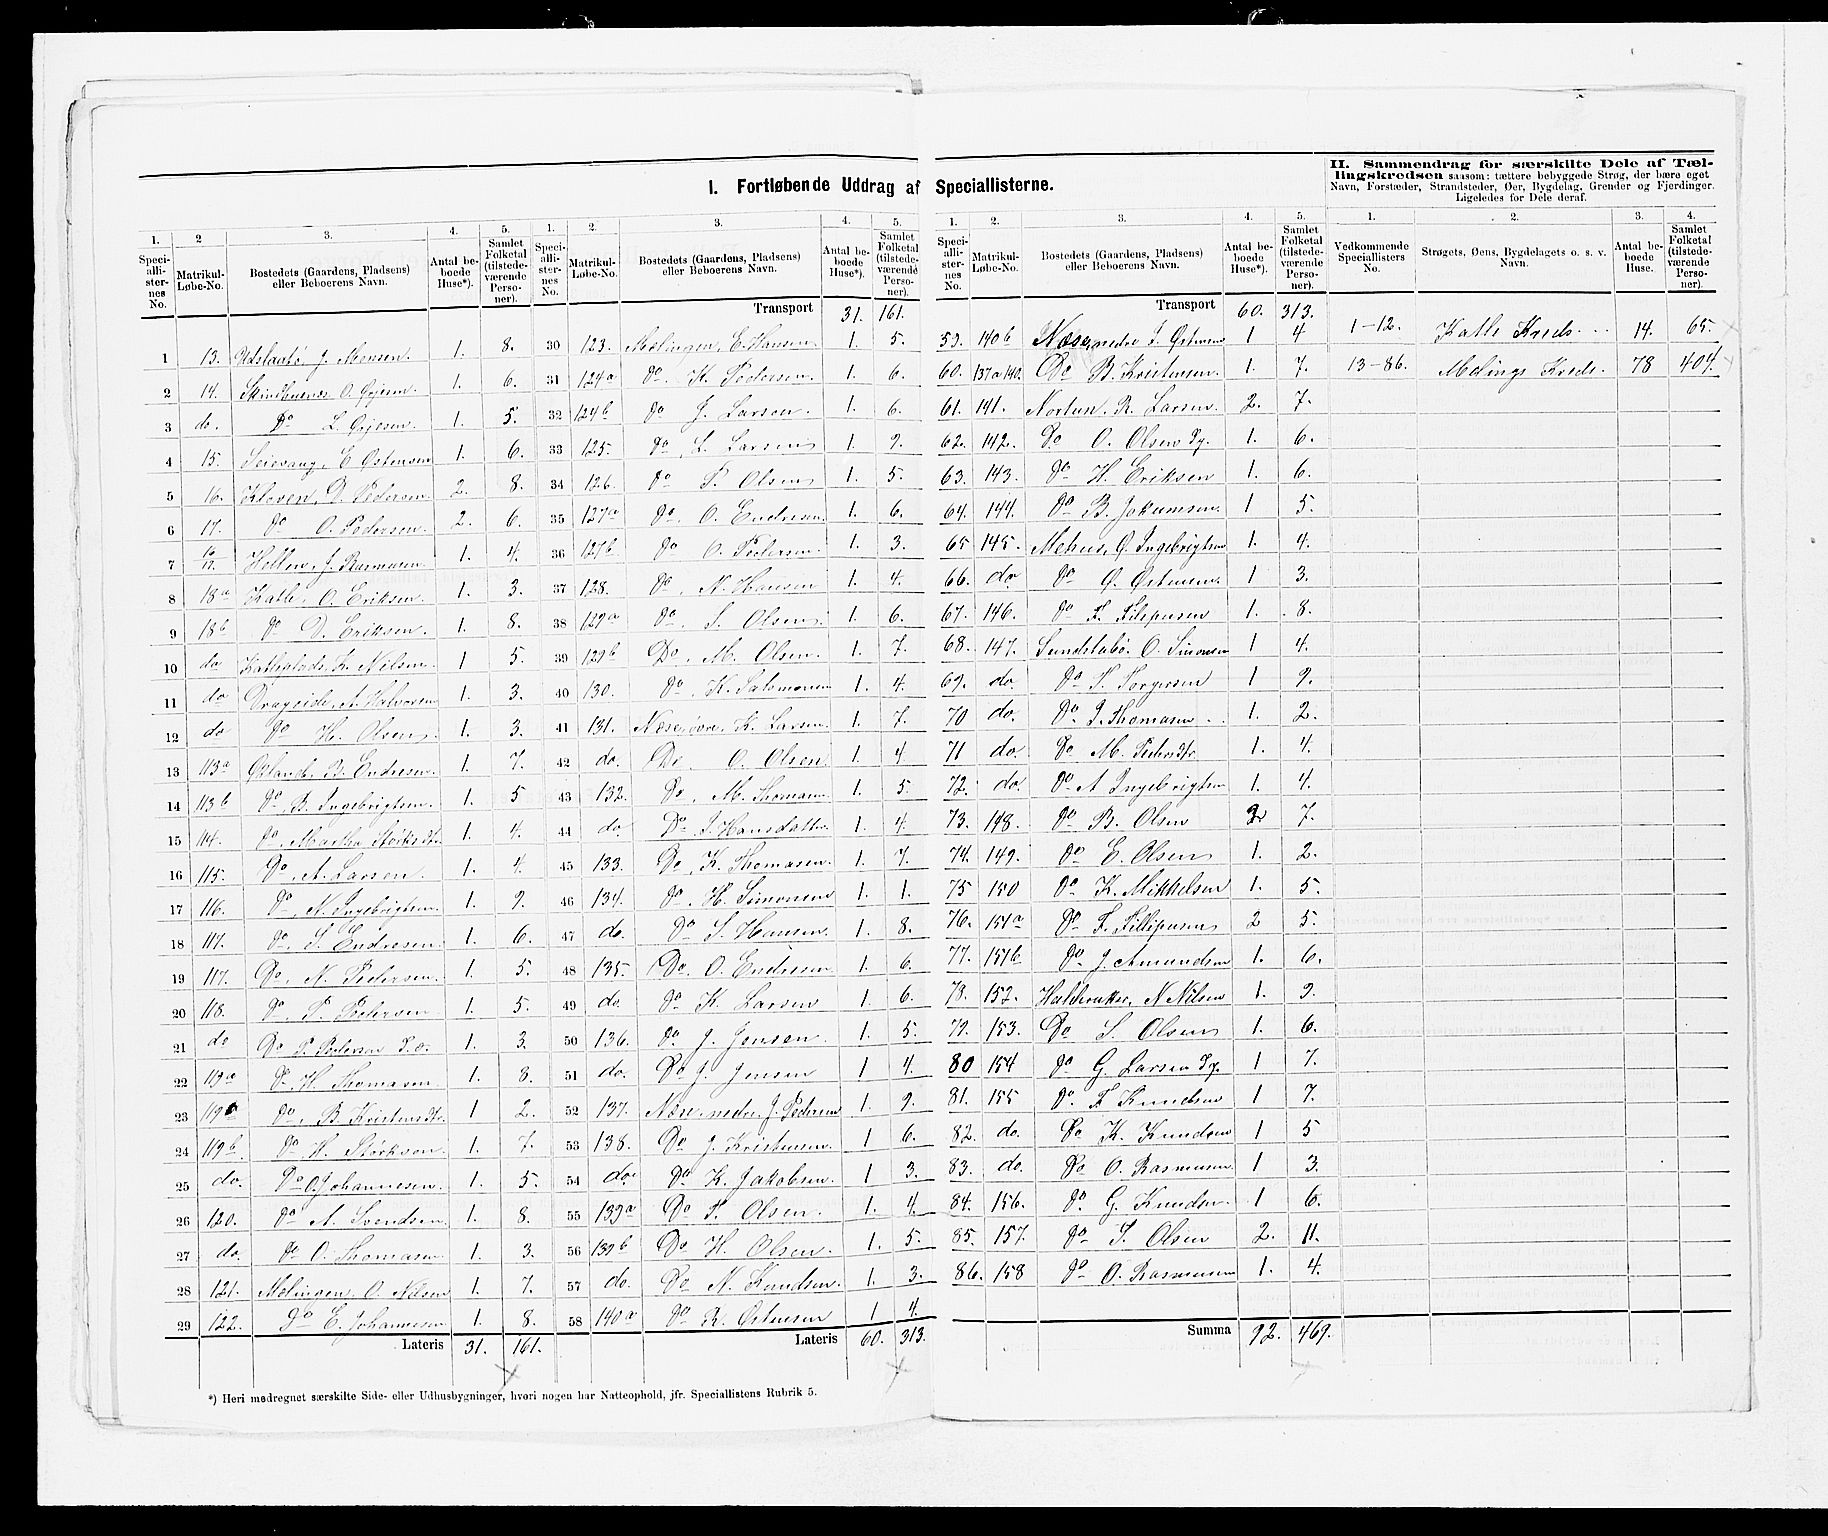 I. Fortløbende Uddrag af Speciallisterne.
II. Sammendrag for særskilte Dele af Tællingskredsen saasom: tættere bebyggede Strøg, der bære eget
Navn, Forstæder, Strandsteder, Øer, Bygdelag, Grender og Fjerdinger.
Ligeledes for Dele deraf.
1. 2 3. 4. 5. 1. 2. 3. 4. 5.
Speciallisternes No. Matrikul-Løbe-No. Bostedets (Gaardens, Pladsens) eller Beboerens Navn. Antal beboede Huse*). Samlet Folketal (tilstedeværende Personer).
Speciallisternes No. Matrikul-Løbe-No. Bostedets (Gaardens, Pladsens) eller Beboerens Navn. Antal beboede Huse*). Samlet Folketal (tilstedeværende Personer).
Transport 31. 161.
1 13. Udslaatø, J. Monsen. 1. 8.
2 14. Skindhuenes O. Gjesen 1. 6.
3 do. Do L. Gjesen. 1. 5.
4 15. Seievaag, E Østensen 1. 6.
5 16. Kloven, D. Pedersen. 2. 8.
6 17. Do O. Pedersen. 2. 6.
7 Hellen, J. Rasmusen 1. 4.
8 18a Katle, O. Eriksen. 1. 3.
9 18b Do D. Eriksen. 1. 8.
10 do Nilsen. 1 5.
11 do Drageide, A. Halvorsen 1. 3.
12 do Do H. Olsen. 1. 3.
13 113a Økland, B. Endresen. 1. 7.
14 113b Do, B. Ingebrigtsen. 1. 5
15 114. Do, Martha 1. 4.
16 115. Do, A. Larsen. 1. 4.
17 116. Do, N. Ingebrigtsen. 1. 9.
18 117. Do, S. Endresen. 1. 6.
19 117. Do, N. Pedersen. 1. 5.
20 118. Do, P. Pedersen 1. 5.
21 do Do P. Pedersen 1. 3.
22 119a Do H. Thomasen 1. 8.
23 119a Do, B. Kristensdtr. 1 2.
24 119b Do H. Størksen. 1. 7.
25 do. Do O. Johannesen. 1. 5.
26 120. Do A. Svendsen. 1. 8.
27 do. Do O. Thomasen 1. 3.
28 121. Melingen, O. Nilsen 1. 7.
29 122. Do E. Johannesen 1. 8.
Lateris 31. 161.
30 123. Melingen, E. Hansen 1. 5.
31 124a Do, K. Pedersen. 1. 6.
32 124b Do J. Larsen. 1. 6.
33 125. Do, L. Larsen 1 9.
34 126. Do P. Olsen 1. 5.
35 127a Do, O. Endresen. 1. 6.
36 127b. Do O. Pedersen. 1. 3.
37 128. Do, N. Hansen 1. 4.
38 129a Do, S. Olsen. 1. 6.
39 129b Do, M. Olsen. 1. 7.
40 130. Do, K. Salomonsen 1. 4.
41 131. Næse, øvre, K. Larsen. 1. 7.
42 do. Do O. Olsen 1. 4
43 132. Do, M. Thomasen 1. 5.
44 do. Do Hansdatter 1. 4.
45 133. Do, K. Thomasen. 1. 7.
46 134. Do, H. Simonsen 1. 1.
47 do. Do S. Hansen. 1. 8.
48 135. Do. O. Endresen 1. 6.
49 do. Do K. Larsen 1. 6.
50 136. Do J. Jensen. 1. 5.
51 do. Do J. Jensen 1 4.
52 137. Næse, nedre, J. Pedersen 1. 9.
53 138. Do J. Kristensen. 1 6.
54 do. Do K. Jakobsen. 1 3.
55 139a Do P. Olsen. 1. 4.
56 139b Do H. Olsen. 1. 5.
57 do. Do N. Knudsen. 1. 3.
58 140a Do R. Østensen 1 4.
Lateris 60. 313.
*) Heri medregnet særskilte Side- eller Udhusbygninger, hvori nogen har Natteophold, jfr. Speciallistens Rubrik 5.
1. 2. 3. 4. 5. 1. 2. 3. 4.
Speciallisternes No. Matrikul-Løbe-No. Bostedets (Gaardens, Pladsens) eller Beboerens Navn. Antal beboede Huse*). Samlet Folketal (tilstedeværende Personer).
Transport 60. 313.
59. 140b Næse, nedre Østensen 1 4
60. 137a 140. Do B. Kristensen. 1. 7.
61. 141. Nortun. R. Larsen. 2. 7.
62. 142. Do O. Olsen Py. 1. 6.
63. 143. Do H. Eriksen 1. 6.
64. 144. Do B. Jokumsen. 1 5.
65 145. Mehus, Ingebrigtsen 1. 4.
66. do Do Østensen. 1 3.
67. 146. Do 1. 8.
68. 147. Sundstabø. O. Simonsen 1 4.
69. do. Do Torgersen 1 9.
70 do. Do Thomasen 1. 2.
71 do. Do M. Pedersdtr. 1. 4.
72. do. Do A Ingebrigtsen 1. 4.
73. 148. Do B. Olsen 2 7.
74. 149. Do E. Olsen 1. 2.
75 150 Do K. Mikkelsen 1. 5.
76. 151a Do 2 5.
77. 151b Do J. Amundsen 1. 6.
78. 152. N Nilsen 1. 9.
79. 153. Do S. Olsen 1. 6.
80 154 Do G. Larsen Py. 1 7.
81. 155 Do Knudsen 1 7.
82. do. Do K. Knudsen 1 5
83. do. Do O. Rasmusen. 1 3.
84. 156. Do G. Knudsen. 1 6.
85. 157. Do Olsen 2. 11.
86. 158 Do O. Rasmusen 1. 4.
Summa 92. 469.
Vedkommende Speciallisters No. Strøgets, Øens, Bygdelagets o. s. v. Navn. Antal beboede Huse. Samlet Folketal (tilstedeværende Personer).
1-12. Katle Kreds. 14. 65.
13-86. Melings Kreds. 78 404.